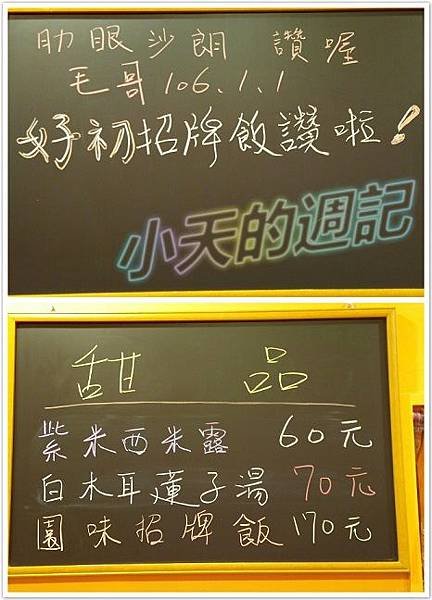 肋眼沙朗 讚喔
毛哥106.1.1
好初招牌飯讚啦！
小天的週記
甜 品
紫米西米露 60元
白木耳蓮子湯 70元
園味招牌飯 170元